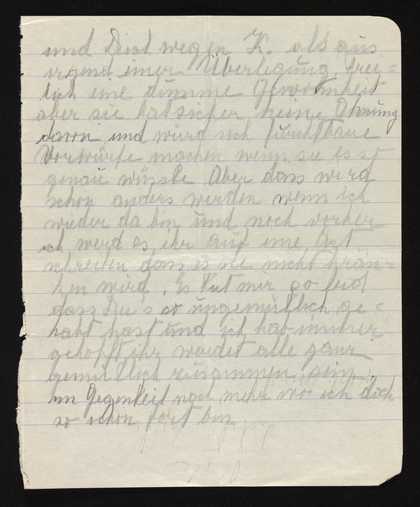 und Dirst weg in K. als aus
irgend einer Überlegung, frei-
lich eine dumme Gewohnheit
aber sie hat sicher keine Ahnung
davon und wird sich furchtbare
Vorwürfe machen wenn sie es so
genau wüsste Aber das wird
schon anders werden wenn ich
wieder da bin und noch vorher
ich werd es ihr auf eine Art
schreiben dass es sie nicht krän-
ken wird. Es tut mir so leid
dass Du's so ungemütlich ge-
habt hast und ich hab immer
gehofft ihr werdet alle ganz
gemütlich zusammen sein,
im Gegenteil noch mehr wo ich doch
so schon fort bin